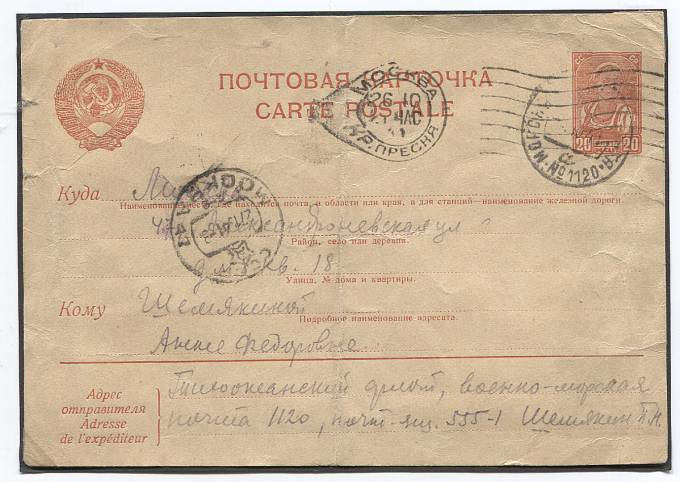 ПОЧТОВАЯ КАРТОЧКА
CARTE POSTALE
МОСКВА
26 10
ЧАС
41
КР. ПРЕСНЯ
20 20
№1120
Куда
Наименование места, где находится почта, и области или края, а для станций—наименование железной дороги
ул
Район, село или деревня.
кв. 18
Улица, № дома и квартиры.
Кому Шемякиной
Подробное наименование адресата.
Анне Федоровне
Адрес отправителя
Adresse de l'expéditeur
Тихоокеанский флот, военно-морская
почта 1120, почт-ящ. 555-1 Шемякин П.М.